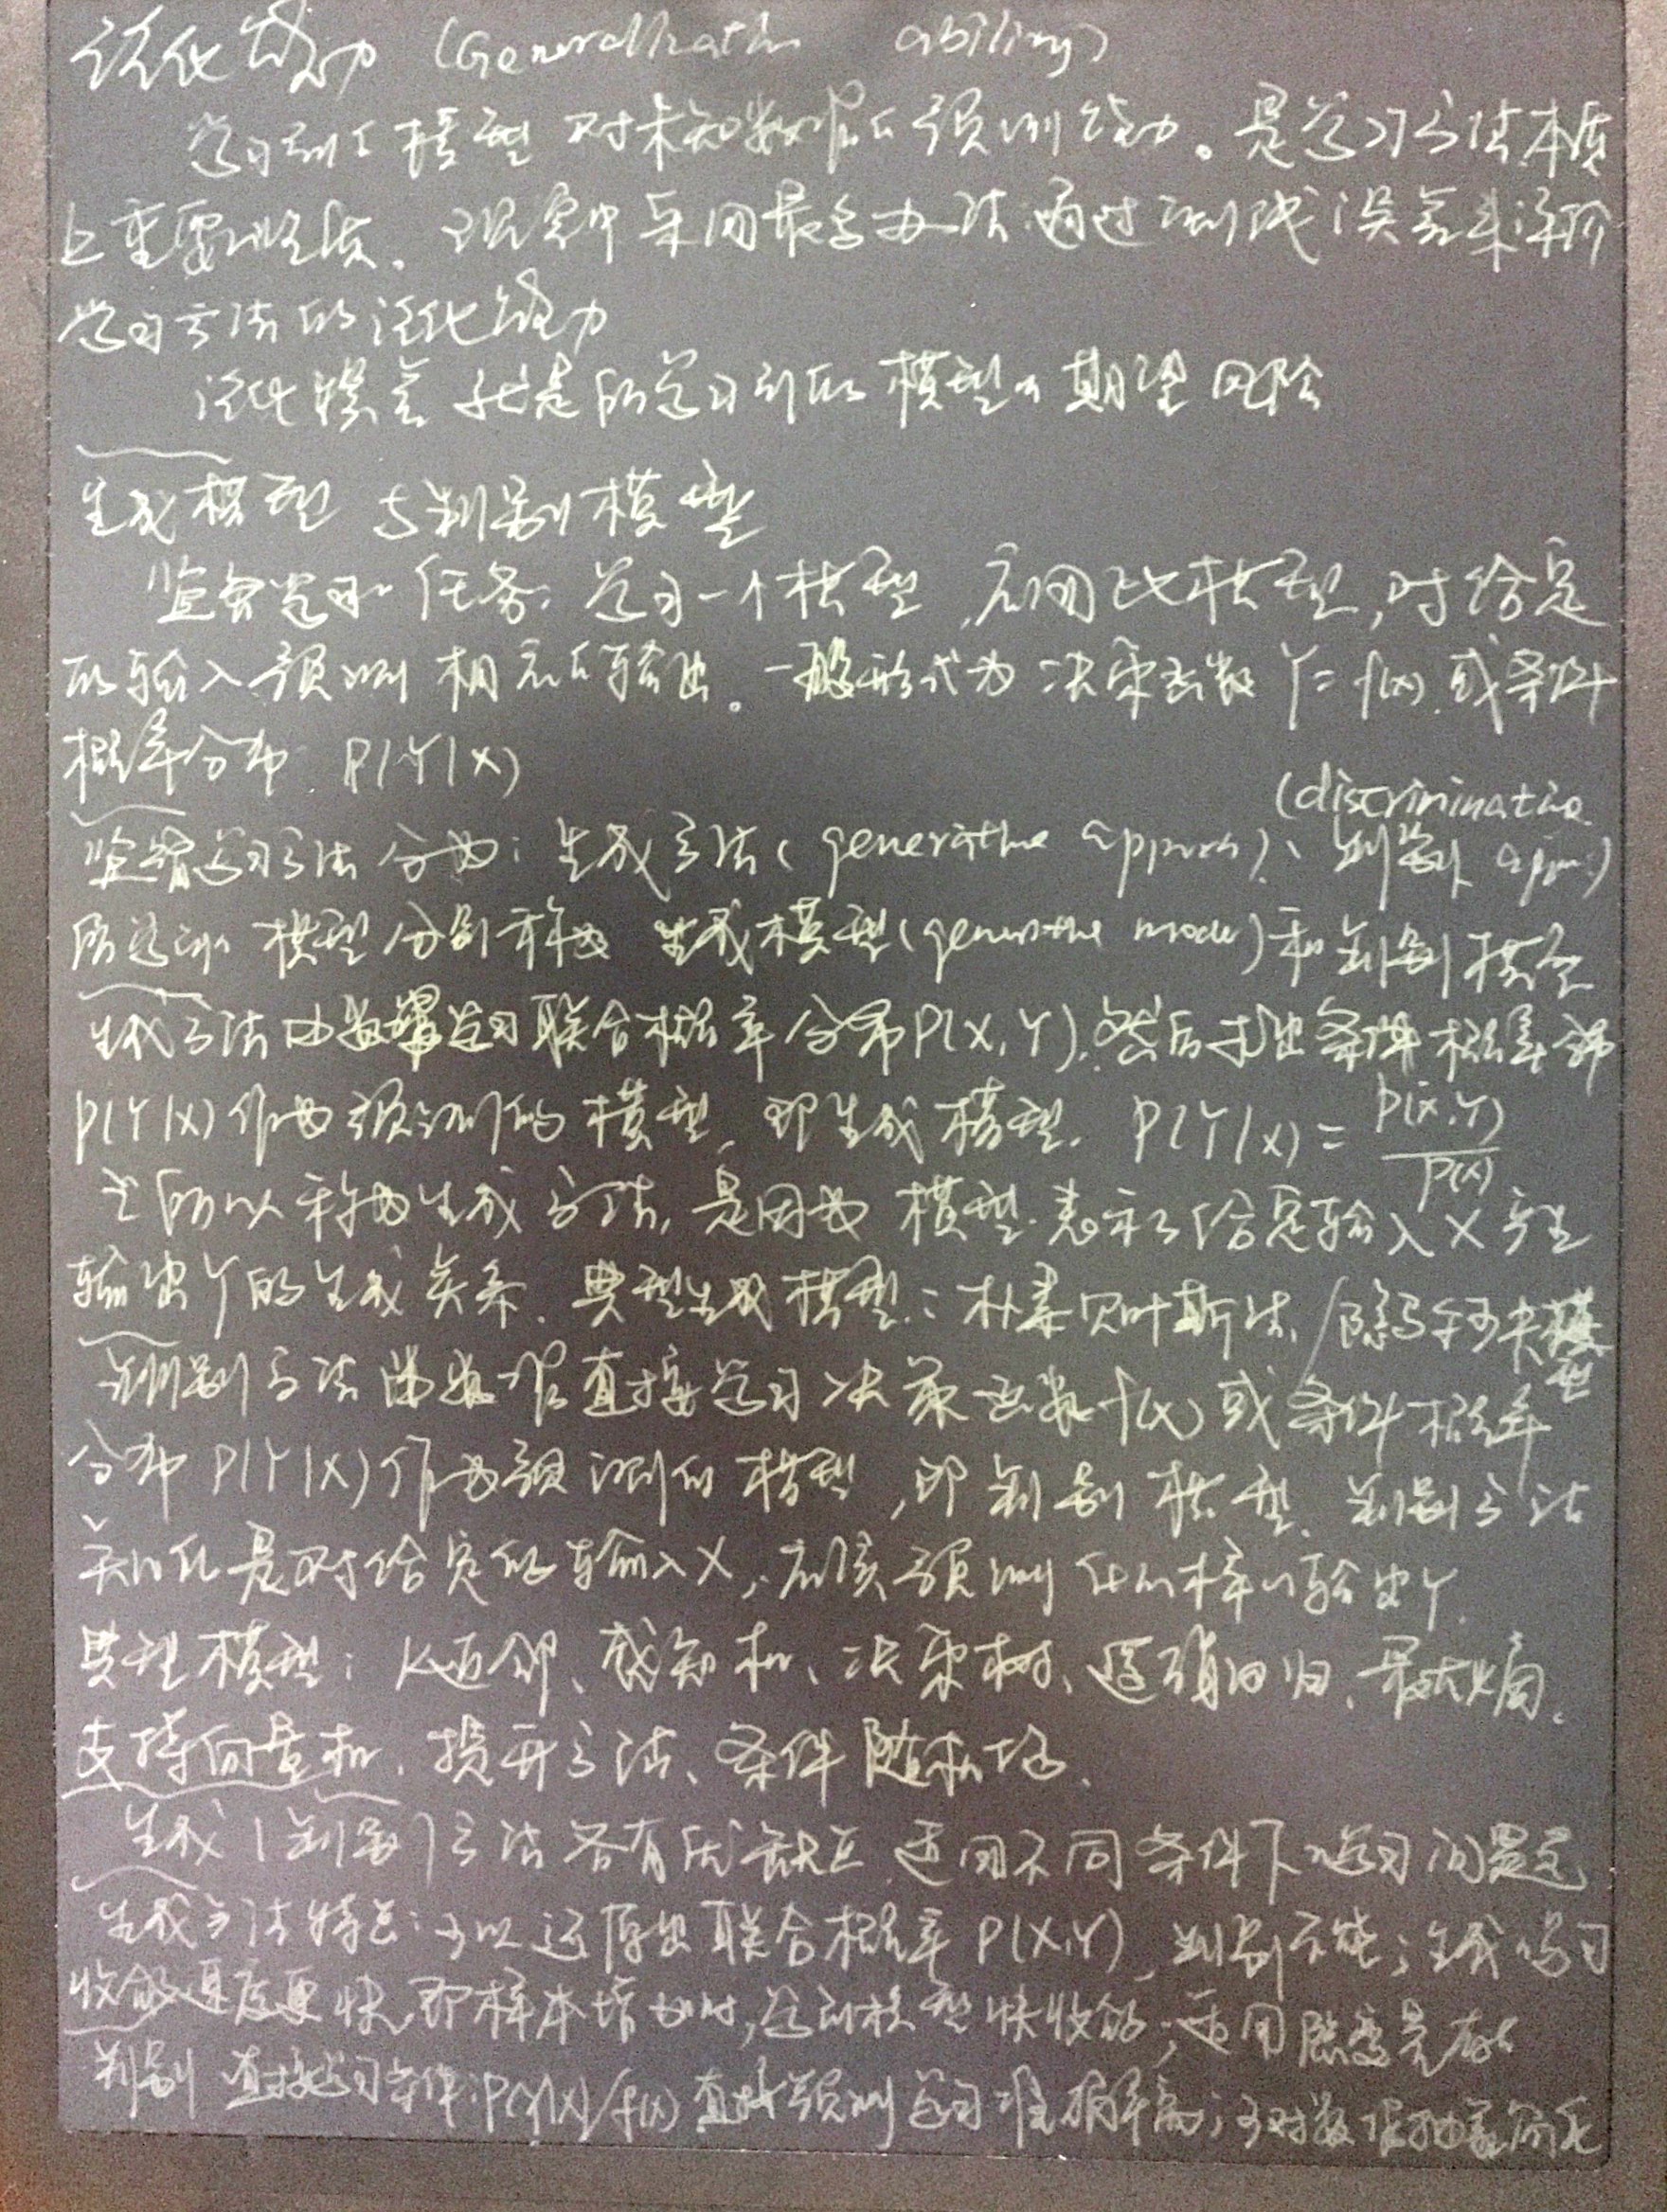 泛化能力 (Generalization ability)
学习到的模型对未知数据的预测能力。是学习方法本质
上重要的性质。现实中采用最多办法通过测试误差来评价
学习方法的泛化能力
泛化误差就是所学习到的模型的期望风险
生成模型与判别模型
监督学习的任务:学习一个模型,应用此模型,对给定
的输入预测相应的输出。一般形式为决策函数 Y=f(x).或条件
概率分布 P(Y|X)
(discriminative
监督学习方法分为:生成方法(generative approach)、判别 appr)
所学到的模型分别称为 生成模型(generative model)和判别模型
生成方法由数据学习联合概率分布P(X,Y),然后求出条件概率分布
P(Y|X)作为预测的模型,即生成模型. P(Y|X)=P(X,Y)/P(X)
之所以称为生成方法,是因为模型表示了给定输入X产生
输出Y的生成关系.典型生成模型:朴素贝叶斯法/隐马尔可夫模型
判别方法由数据直接学习决策函数f(x)或条件概率
分布P(Y|X)作为预测的模型,即判别模型.判别方法
关心的是对给定的输入X,应该预测什么样的输出Y.
典型模型:K近邻、感知机、决策树、逻辑回归、最大熵、
支持向量机、提升方法、条件随机场.
生成(判别)方法各有优缺点 适用不同条件下的学习问题
生成方法特点:可以还原出联合概率P(X,Y),判别不能;生成学习
收敛速度更快,即样本增加时,学到模型快收敛;适用隐变量存在
判别 直接学习条件P(Y|X)/f(x)直接预测 学习准确率高;可对数据抽象简化